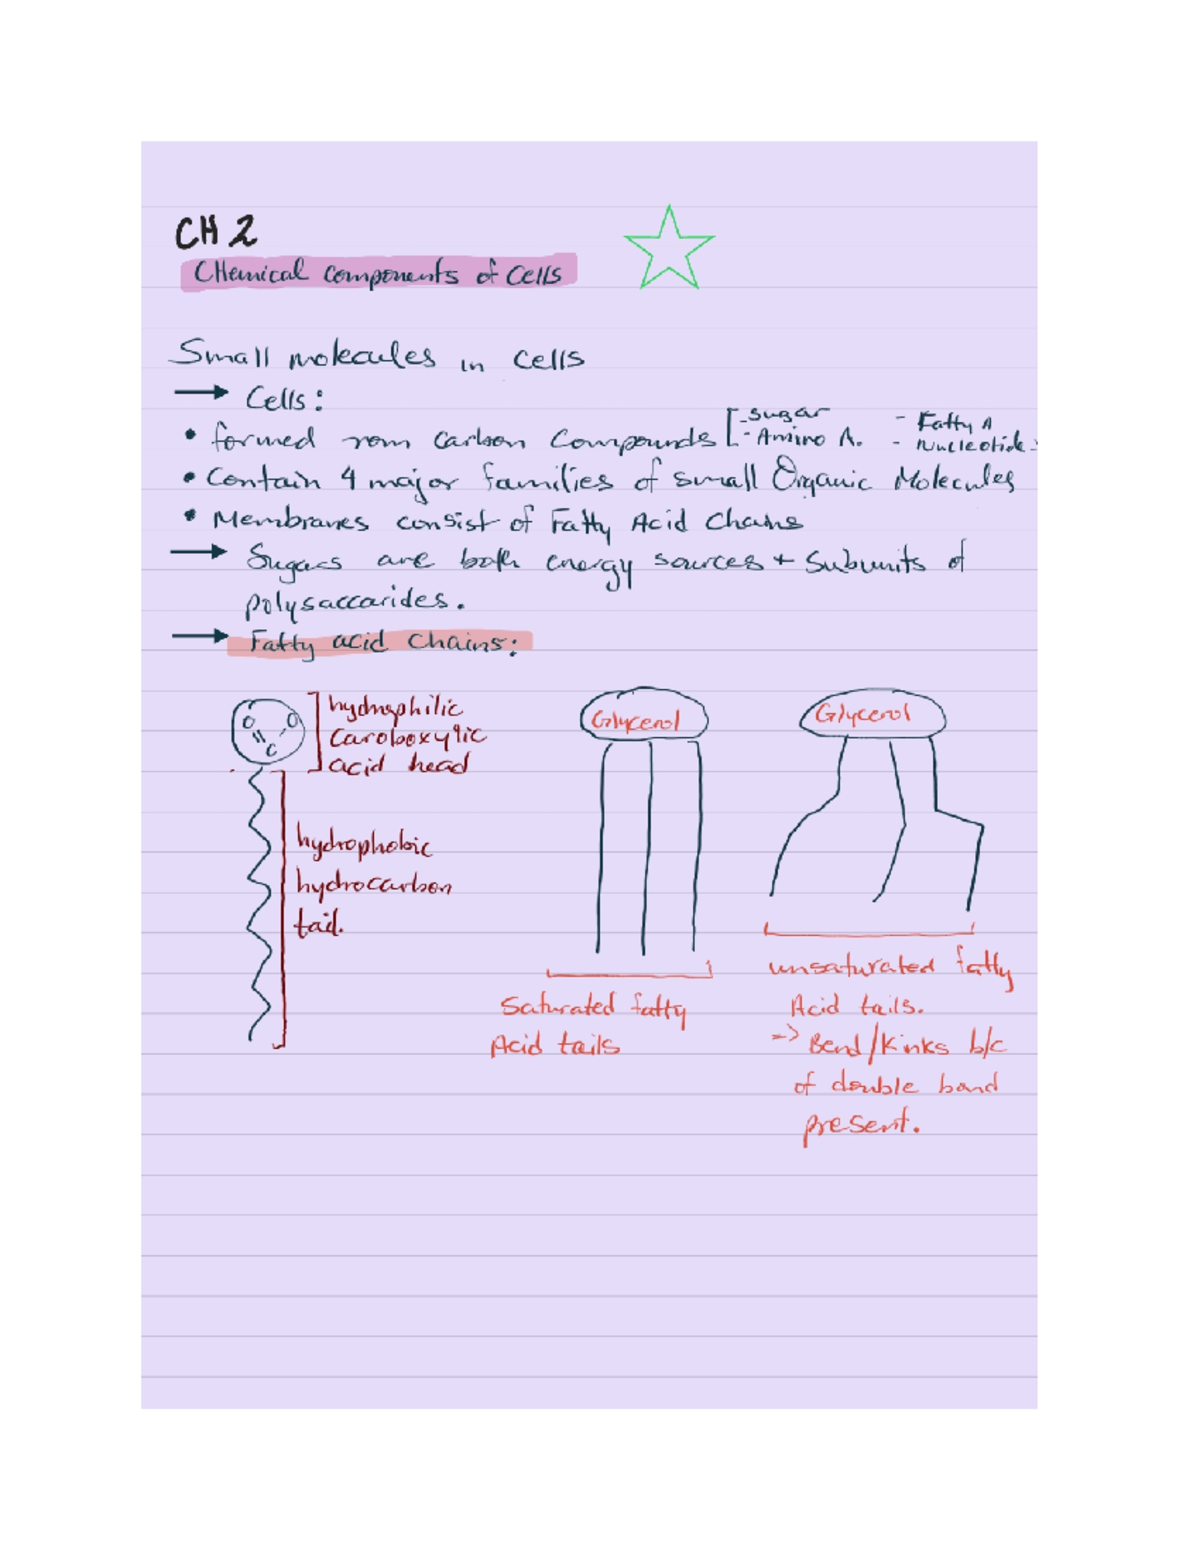 CH 2
CHemical components of Cells
Small molecules in Cells
→ Cells:
• formed rom Carbon Compounds [- Sugar - Fatty A
- Amino A. - Nucleotides
• Contain 4 major families of small Organic Molecules
• Membranes consist of Fatty Acid Chains
→ Sugars are both energy sources + Subunits of
polysaccarides.
→ Fatty acid Chains:
O O
C
hydrophilic
Caroboxylic
acid head
hydrophobic
hydrocarbon
tail.
Glycerol
Saturated fatty
Acid tails
Glycerol
unsaturated fatty
Acid tails.
=> Bend/Kinks b/c
of double bond
present.